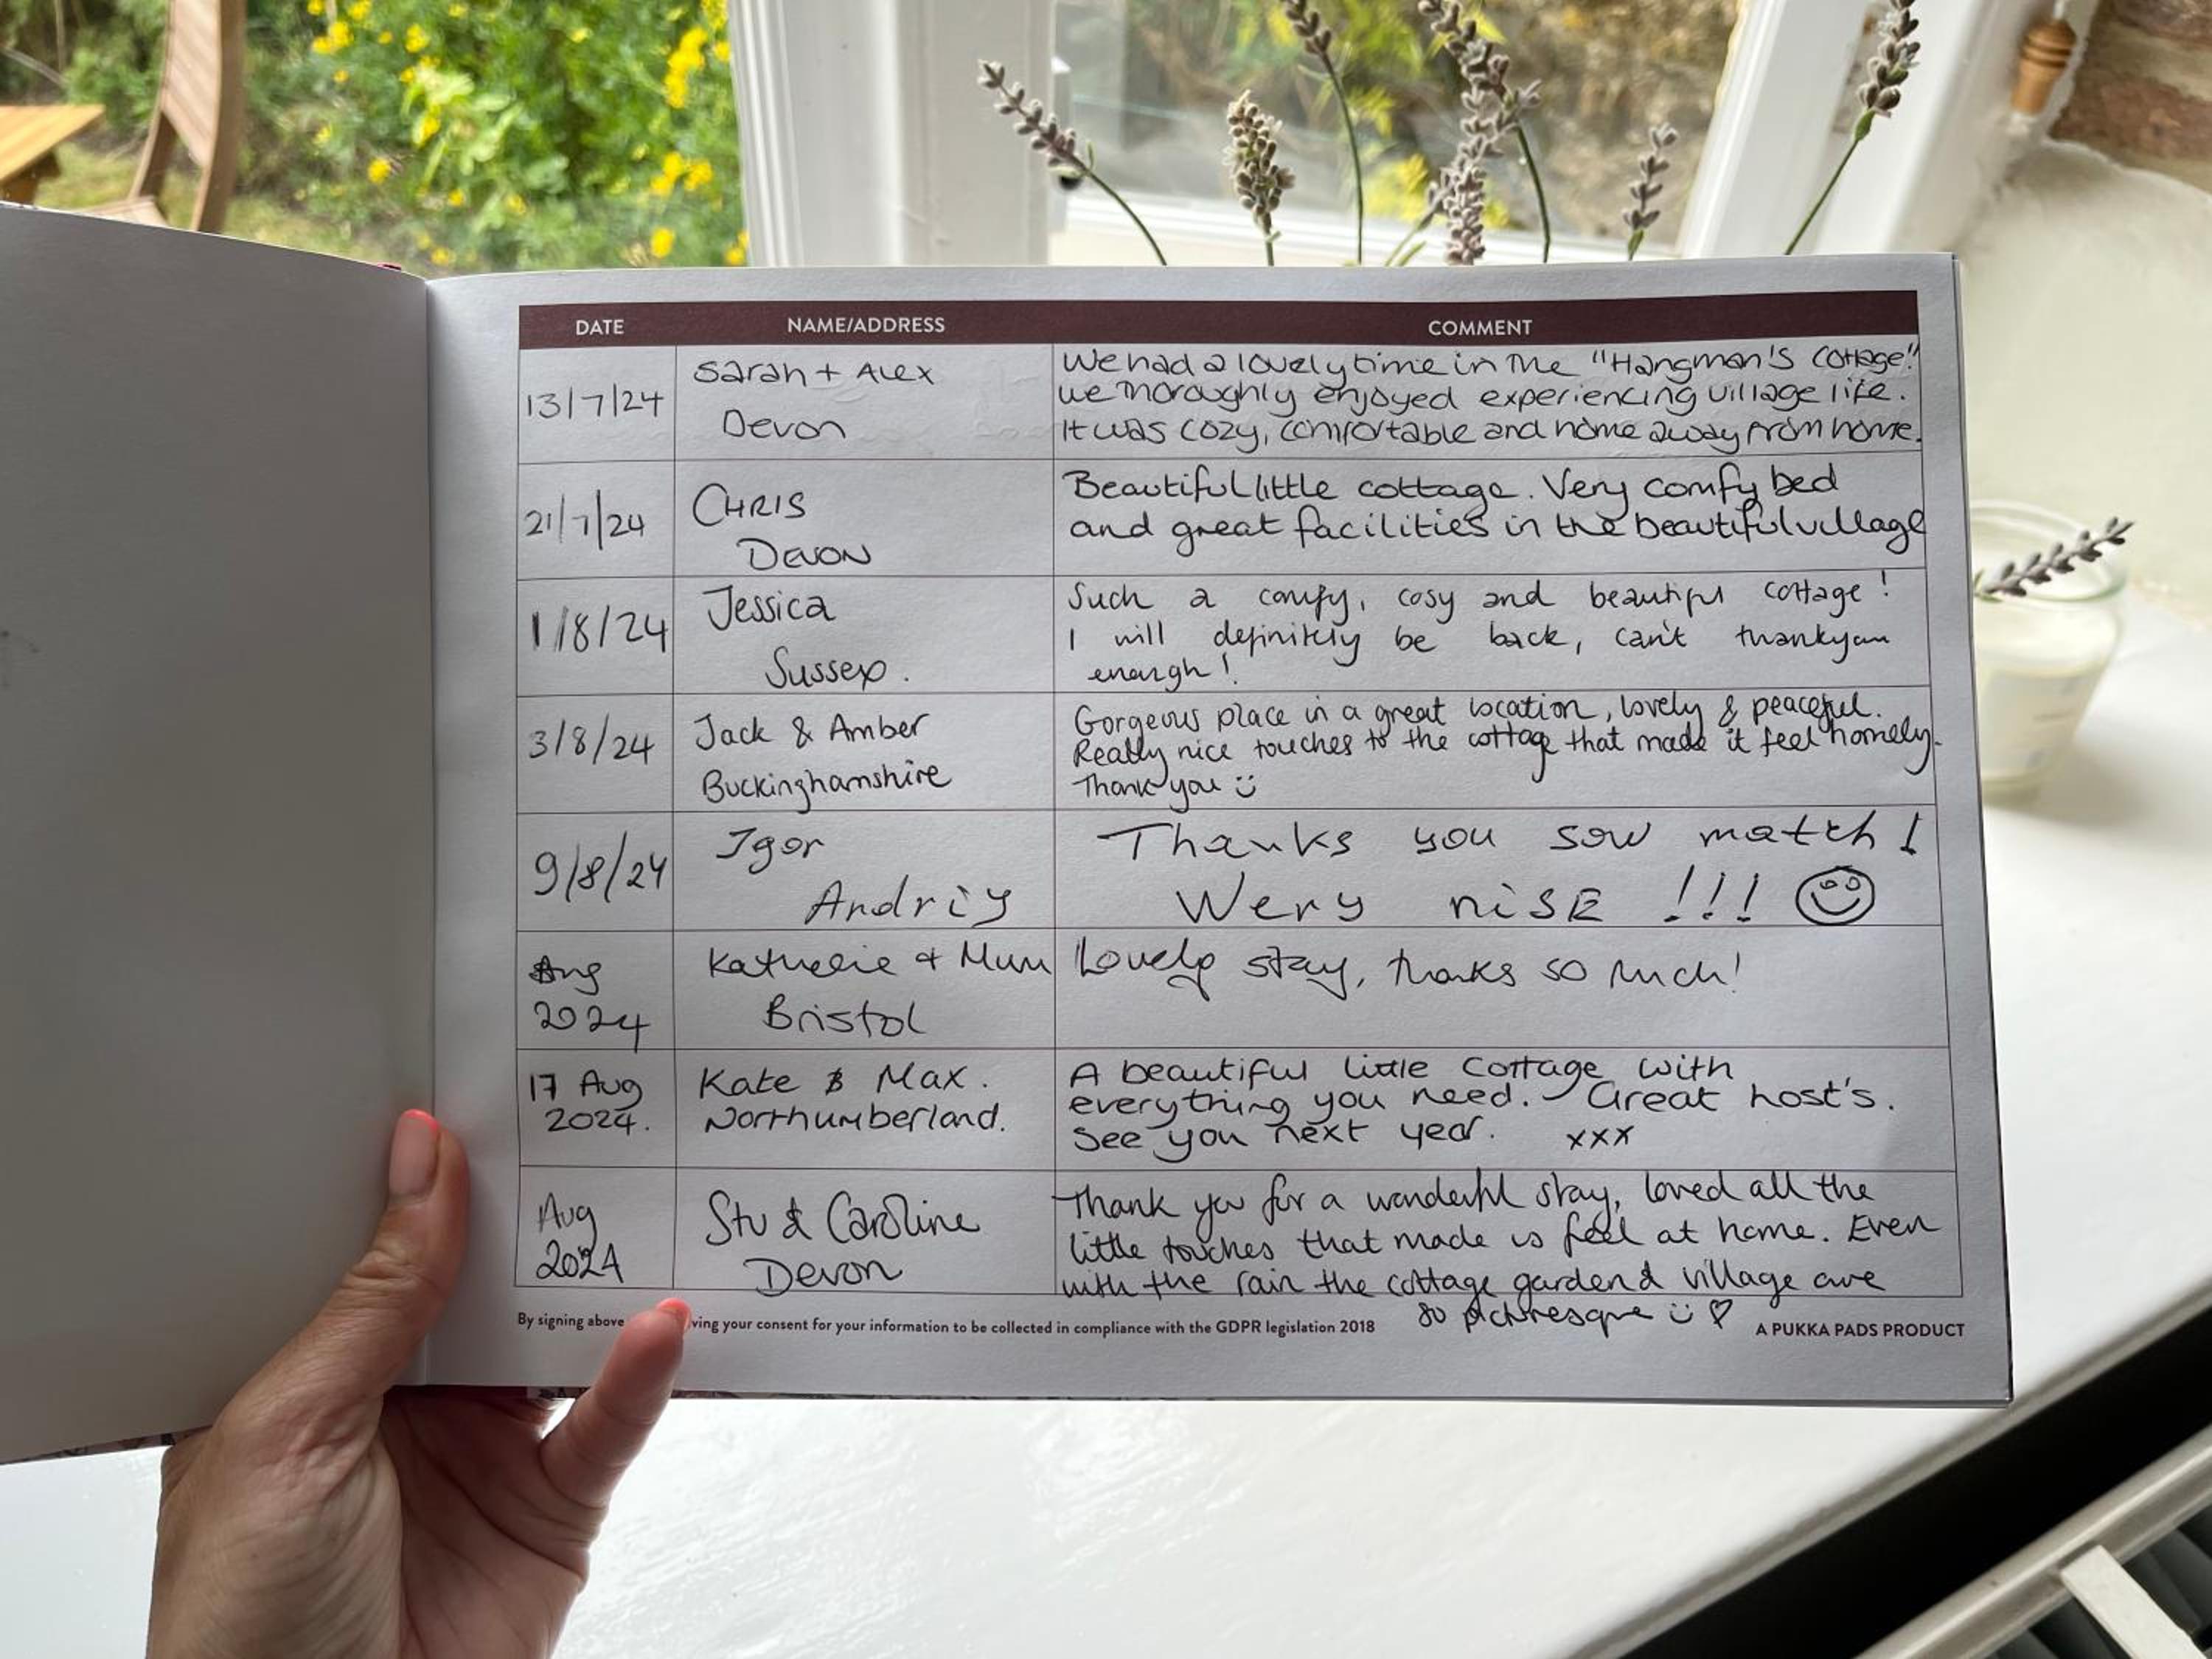 DATE NAME/ADDRESS COMMENT
13/7/24
Sarah + Alex
Devon
We had a lovely time in the "Hangman's Cottage"!
we thoroughly enjoyed experiencing village life.
It was cozy, comfortable and home away from home.
21/7/24
CHRIS
DEVON
Beautiful little cottage. Very comfy bed
and great facilities in the beautiful village
1/8/24
Jessica
Sussex.
Such a comfy, cosy and beautiful cottage!
I will definitely be back, can't thankyou
enough!
3/8/24
Jack & Amber
Buckinghamshire
Gorgeous place in a great location, lovely & peaceful.
Really nice touches to the cottage that made it feel homely.
Thank you ☺
9/8/24
Igor
Andriy
Thanks you sow match!
Wery niSE !!! ☺
Aug
2024
+ Mum
Bristol
Lovely stay, thanks so much!
17 Aug
2024.
Kate & Max.
Northumberland.
A beautiful little cottage with
everything you need. Great host's.
See you next year. xxx
Aug
2024
Stu & Caroline
Devon
Thank you for a wonderful stay, loved all the
little touches that made us feel at home. Even
with the rain the cottage garden & village are
so picturesque ☺ ♡
By signing above ving your consent for your information to be collected in compliance with the GDPR legislation 2018
A PUKKA PADS PRODUCT